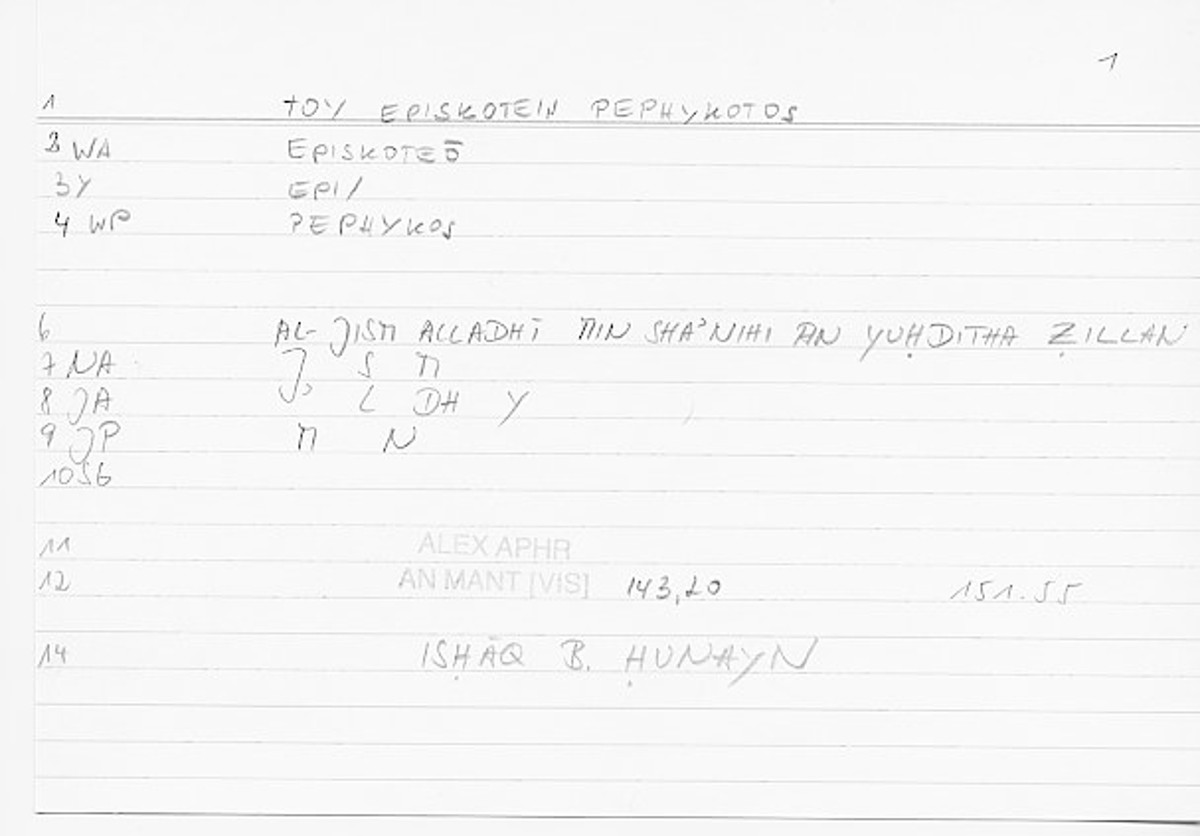 1
1 TOY EPISKOTEIN PEPHYKOTOS
2 WA EPISKOTEŌ
3 Y EPI/
4 WP PEPHYKOS
6 AL- JISM ALLADHĪ MIN SHAʾNIHI AN YUḤDITHA ẒILLAN
7 NA J S M
8 JA L DH Y
9 JP M N
10 SG
11 ALEX APHR
12 AN MANT [VIS] 143,20 151.55
14 ISḤĀQ B. ḤUNAYN